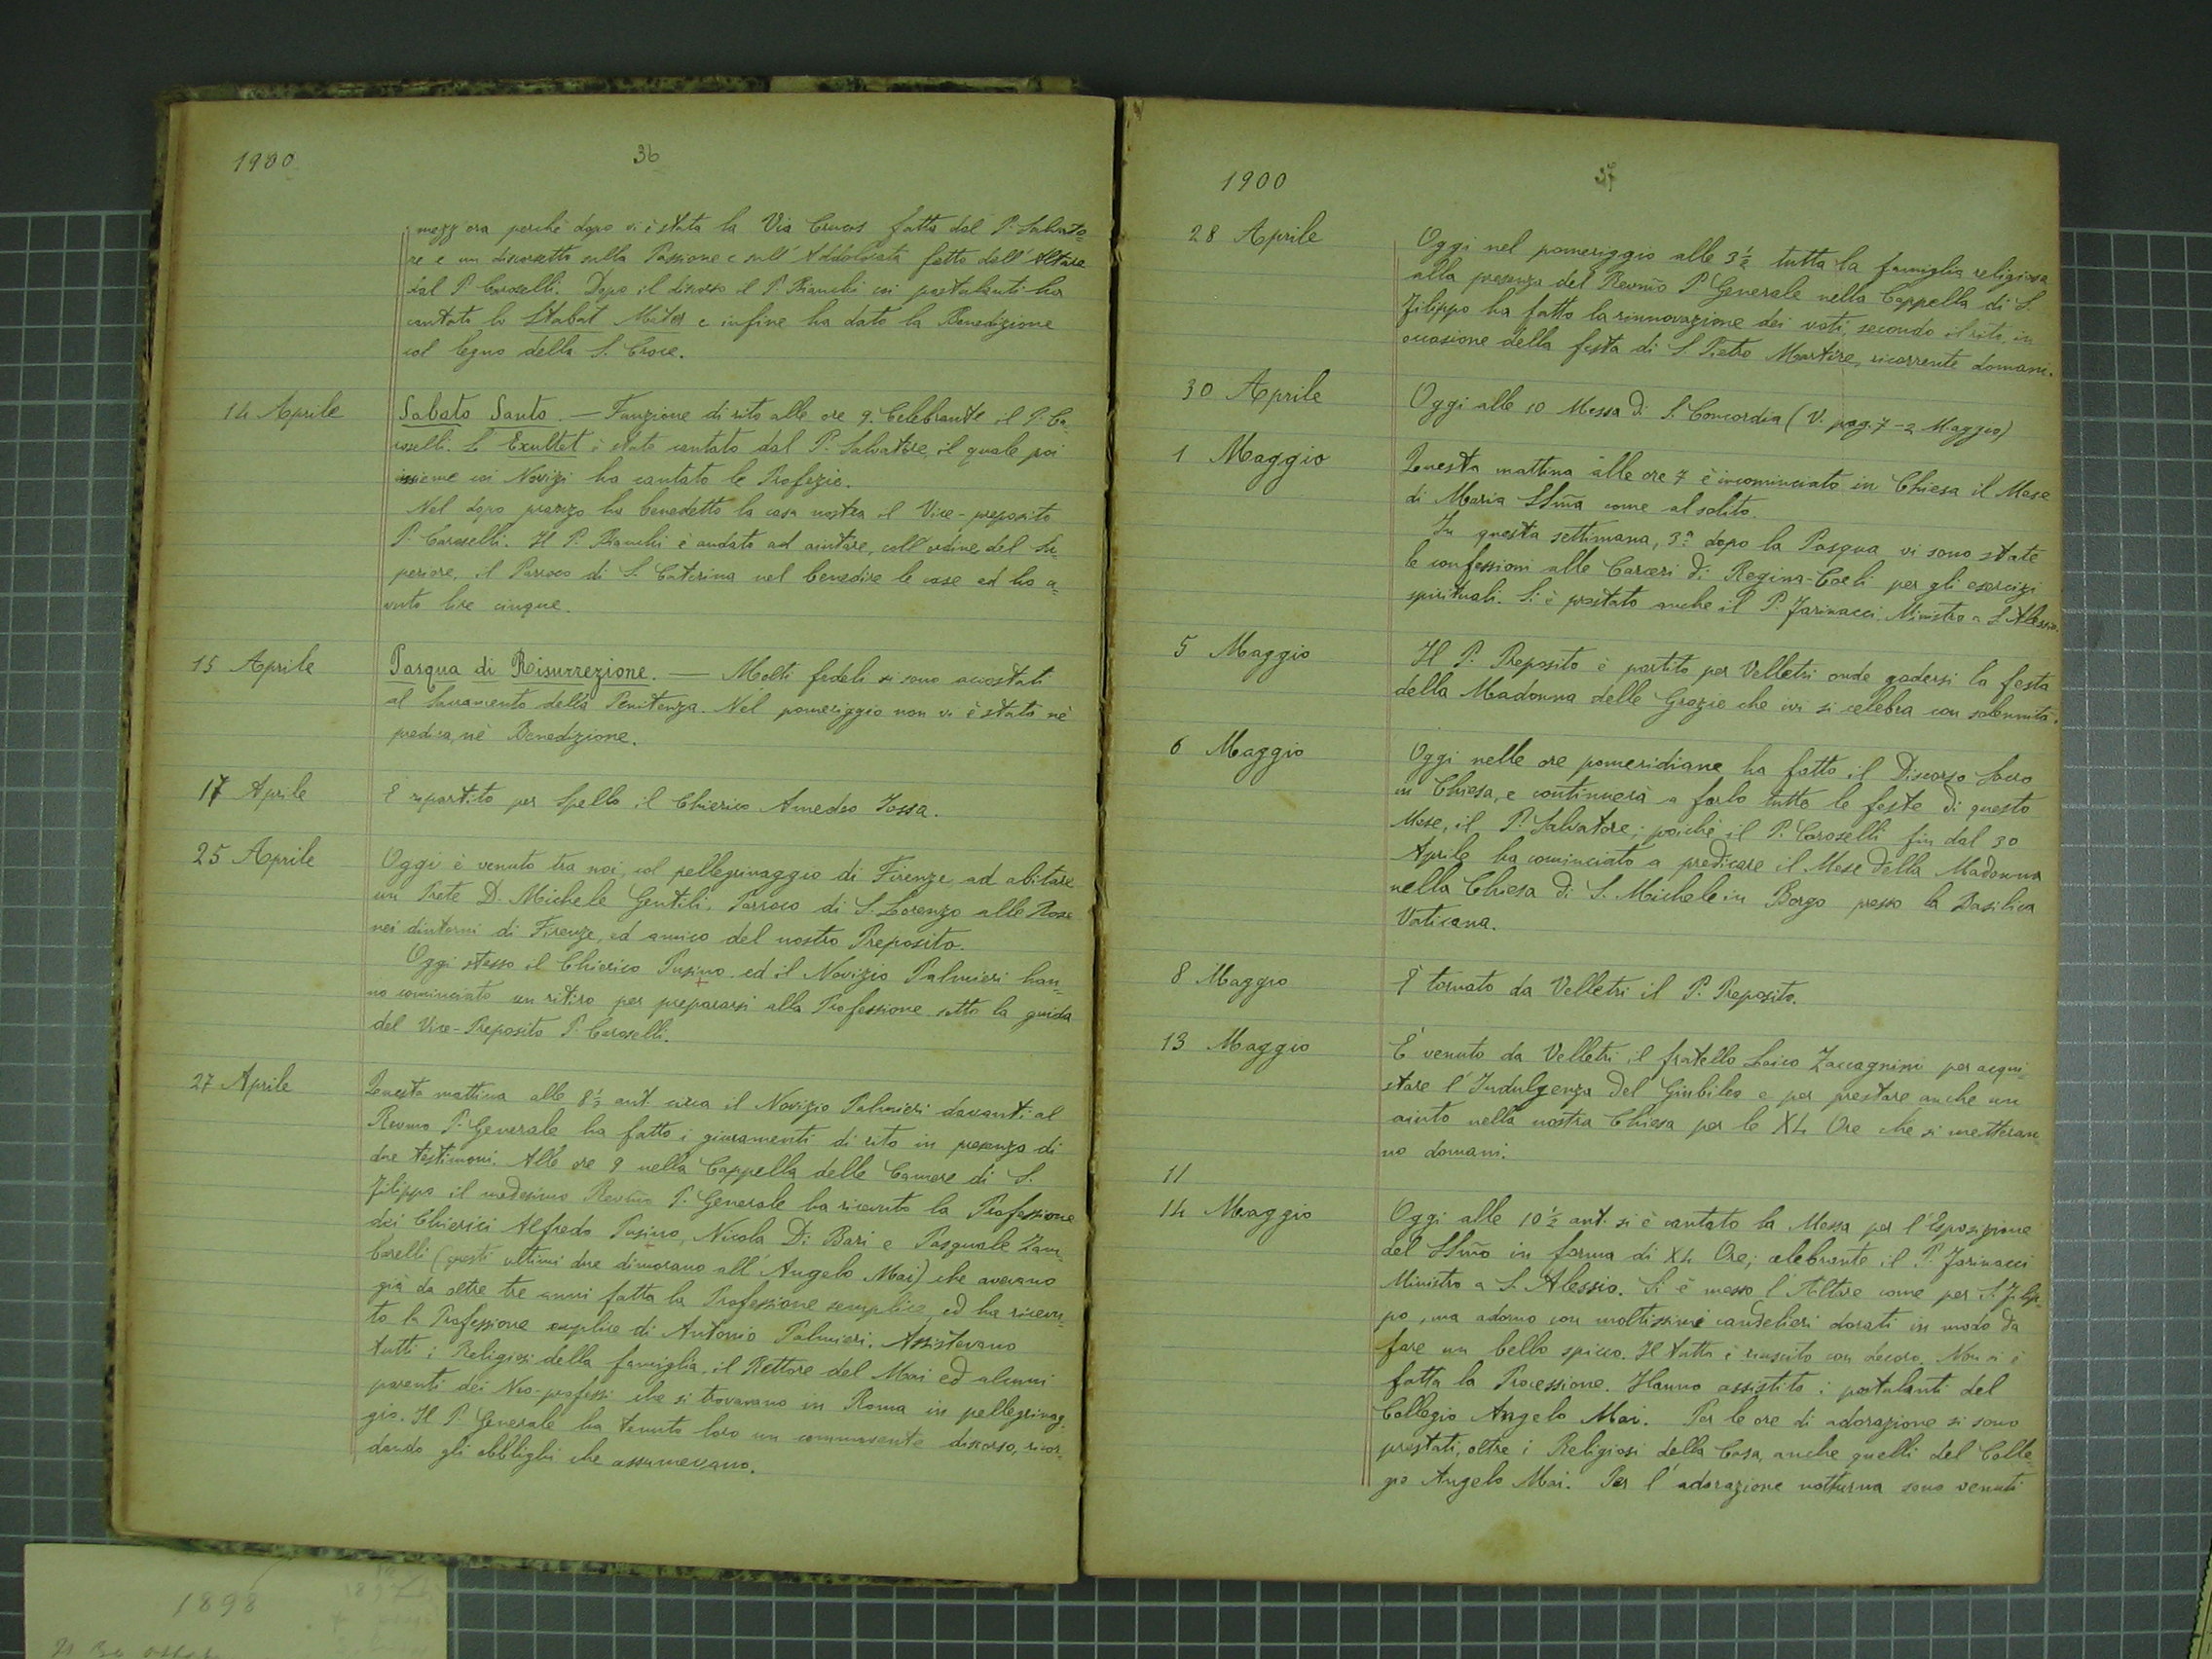 1900
36
mezz'ora perchè dopo vi è stata la Via Crucis fatta dal P. Salvato=
re e un discorsetto sulla Passione e sull'Addolorata fatto dall'Altare
dal P. Caroselli. Dopo il discorso il P. Bianchi coi postulanti ha
cantato lo Stabat Mater e infine ha dato la Benedizione
col legno della S. Croce.
14 Aprile
Sabato Santo. — Funzione di rito alle ore 9. Celebrante il P. Ca
roselli. L'Exultet è stato cantato dal P. Salvatore, il quale poi
insieme coi Novizi ha cantato le Profezie.
Nel dopo pranzo ha benedetto la casa nostra il Vice-preposito
P. Caroselli. Il P. Bianchi è andato ad aiutare, coll'ordine del Su=
periore, il Parroco di S. Caterina nel benedire le case ed ha a=
vuto lire cinque.
15 Aprile
Pasqua di Risurrezione. — Molti fedeli si sono accostati
al Sacramento della Penitenza. Nel pomeriggio non vi è stato nè
predica, nè Benedizione.
17 Aprile
È ripartito per Spello il Chierico Amedeo Jossa.
25 Aprile
Oggi è venuto tra noi, col pellegrinaggio di Firenze, ad abitare
un Prete D. Michele Gentili, Parroco di S. Lorenzo alle Rose
nei dintorni di Firenze, ed amico del nostro Preposito.
Oggi stesso il Chierico Pusino ed il Novizio Palmieri han=
no cominciato un ritiro per prepararsi alla Professione sotto la guida
del Vice-Preposito P. Caroselli.
27 Aprile
Questa mattina alle 8½ ant. circa il Novizio Palmieri davanti al
Revmo P. Generale ha fatto i giuramenti di rito in presenza di
due testimoni. Alle ore 9 nella Cappella delle Camere di S.
Filippo il medesimo Revmo P. Generale ha ricevuto la Professione
dei Chierici Alfredo Pusino, Nicola Di Bari e Pasquale Zam=
barelli (questi ultimi due dimorano all'Angelo Mai) che avevano
già da oltre tre anni fatta la Professione semplice, ed ha ricevu=
to la Professione semplice di Antonio Palmieri. Assistevano
tutti i Religiosi della famiglia, il Rettore del Mai ed alcuni
parenti dei Neo-professi che si trovavano in Roma in pellegrinag=
gio. Il P. Generale ha tenuto loro un commovente discorso, ricor=
dando gli obblighi che assumevano.
1900
37
28 Aprile
Oggi nel pomeriggio alle 3½ tutta la famiglia religiosa
alla presenza del Revmo P. Generale nella Cappella di S.
Filippo ha fatto la rinnovazione dei voti, secondo il rito, in
occasione della festa di S. Pietro Martire, ricorrente domani.
30 Aprile
Oggi alle 10 Messa di S. Concordia (V. pag. 7 - 2 Maggio)
1 Maggio
Questa mattina alle ore 7 è incominciato in Chiesa il Mese
di Maria SSma come al solito.
In questa settimana, 3ª dopo la Pasqua vi sono state
le confessioni alle Carceri di Regina-Coeli per gli esercizi
spirituali. Si è prestato anche il P. Farinacci Ministro a S. Alessio.
5 Maggio
Il P. Preposito è partito per Velletri onde godersi la festa
della Madonna delle Grazie che ivi si celebra con solennità.
6 Maggio
Oggi nelle ore pomeridiane ha fatto il Discorso Sacro
in Chiesa, e continuerà a farlo tutte le feste di questo
Mese, il P. Salvatore; poichè il P. Caroselli fin dal 30
Aprile ha cominciato a predicare il Mese della Madonna
nella Chiesa di S. Michele in Borgo presso la Basilica
Vaticana.
8 Maggio
È tornato da Velletri il P. Preposito.
13 Maggio
È venuto da Velletri il fratello Laico Zaccagnini per acqui=
stare l'Indulgenza del Giubileo e per prestare anche un
aiuto nella nostra Chiesa per le XL Ore che si metteran=
no domani.
11
14 Maggio
Oggi alle 10½ ant. si è cantato la Messa per l'Esposizione
del SSmo in forma di XL Ore; celebrante il P. Farinacci
Ministro a S. Alessio. Si è messo l'Altare come per S. Filip=
po, ma adorno con moltissimi candelieri dorati in modo da
fare un bello spicco. Il tutto è riuscito con decoro. Non si è
fatta la Processione. Hanno assistito i postulanti del
Collegio Angelo Mai. Per le ore di adorazione si sono
prestati, oltre i Religiosi della Casa, anche quelli del Colle=
gio Angelo Mai. Per l'adorazione notturna sono venuti
1898